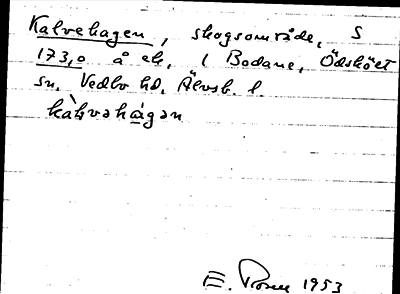 Kalvehagen, skogsområde, S
173,0 å ek. 1 Bodane, Ödskölt
sn. Vedbo hd. Älvsb. l.
kàlvəhágən
E. 1953